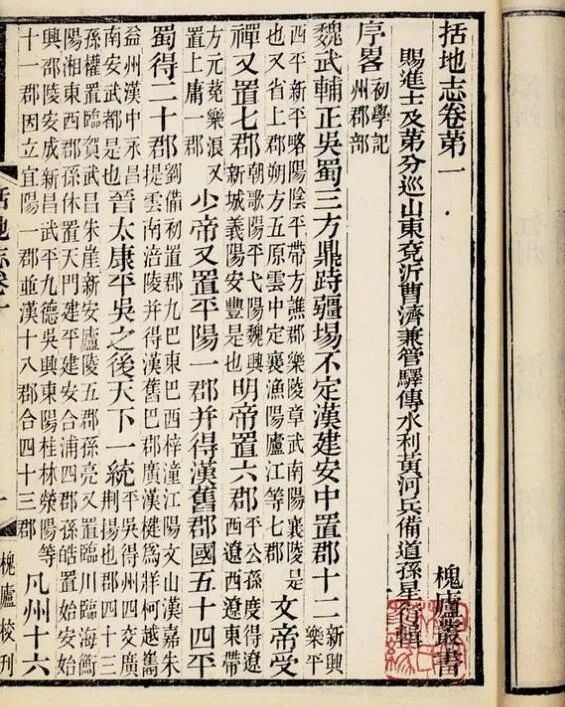 括地志卷第一 槐廬叢書
賜進士及第分巡山東兗沂曹濟兼管驛傳水利黃河兵備道孫星衍輯
序畧 初學記
州郡部
魏武輔正吳蜀三方鼎跱疆埸不定漢建安中置郡十二 新興
樂平
西平新平略陽陰平帶方譙郡樂陵章武南陽襄陵是
也又省上郡朔方五原雲中定襄漁陽廬江等七郡
文帝受
禪又置七郡
朝歌陽平弋陽魏興
新城義陽安豐是也
明帝置六郡
平公孫度得遼
西遼西遼東帶
方元菟樂浪又
置上庸一郡
少帝又置平陽一郡并得漢舊郡國五十四平
蜀得二十郡
劉備初置郡九巴東巴西梓潼江陽文山漢嘉朱
提雲南涪陵并得漢舊巴郡廣漢犍爲牂柯越嶲
益州漢中永昌
南安武都是也
晉太康平吳之後天下一統
平吳得州四交廣
荆揚也郡四十三
孫權置臨賀武昌朱崖新安廬陵五郡孫亮又置臨川臨海衡
陽湘東西郡孫休置天門建平建安合浦四郡孫皓置始安始
興邵陵安成新昌武平九德吳興東陽桂林滎陽等
十一郡因立宜陽一郡並漢十八郡合四十三郡
凡州十六
括地志卷一
一
槐廬校刊